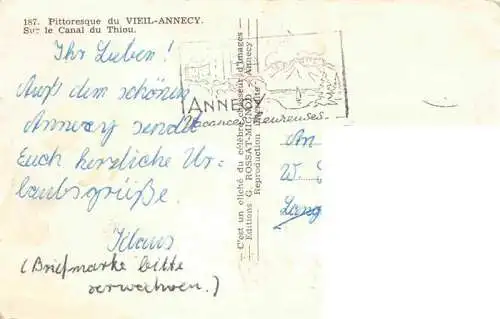 187. Pittoresque du VIEIL-ANNECY.
Sur le Canal du Thiou.
Ihr Lieben!
Aus dem schönen
Annecy sendet
Euch herzliche Ur-
laubsgrüße.
Klaus
(Briefmarke bitte
verwahren.)
ANNECY
Vacances heureuses
— C'est un cliché du célèbre chasseur d'images —
Editions G. ROSSAT-MIGNOD, Annecy
Reproduction interdite
An
W.
Lang